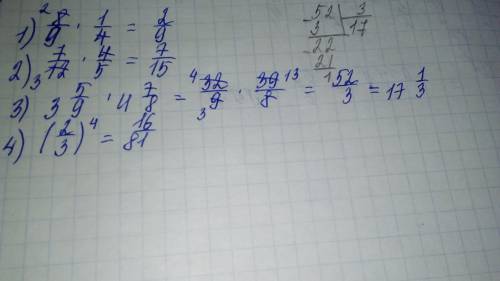 1) 8/9 · 1/4 = 2/9
2) 7/12 · 4/5 = 7/15
3) 3 5/9 · 4 7/8 = 32/9 · 39/8 = 52/3 = 17 1/3
4) (2/3)^4 = 16/81
52 | 3
3 | 17
22
21
1